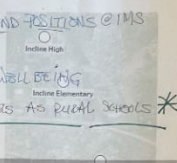 ND POSITIONS @ IMS
Incline High
WELL BEING
Incline Elementary
AS RURAL SCHOOLS *